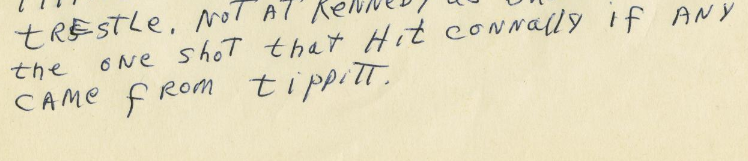 tRESTLE. NOT AT KENNEDY
the ONE SHOT that Hit CONNAlly if ANY
CAMe fROM tippiTT.